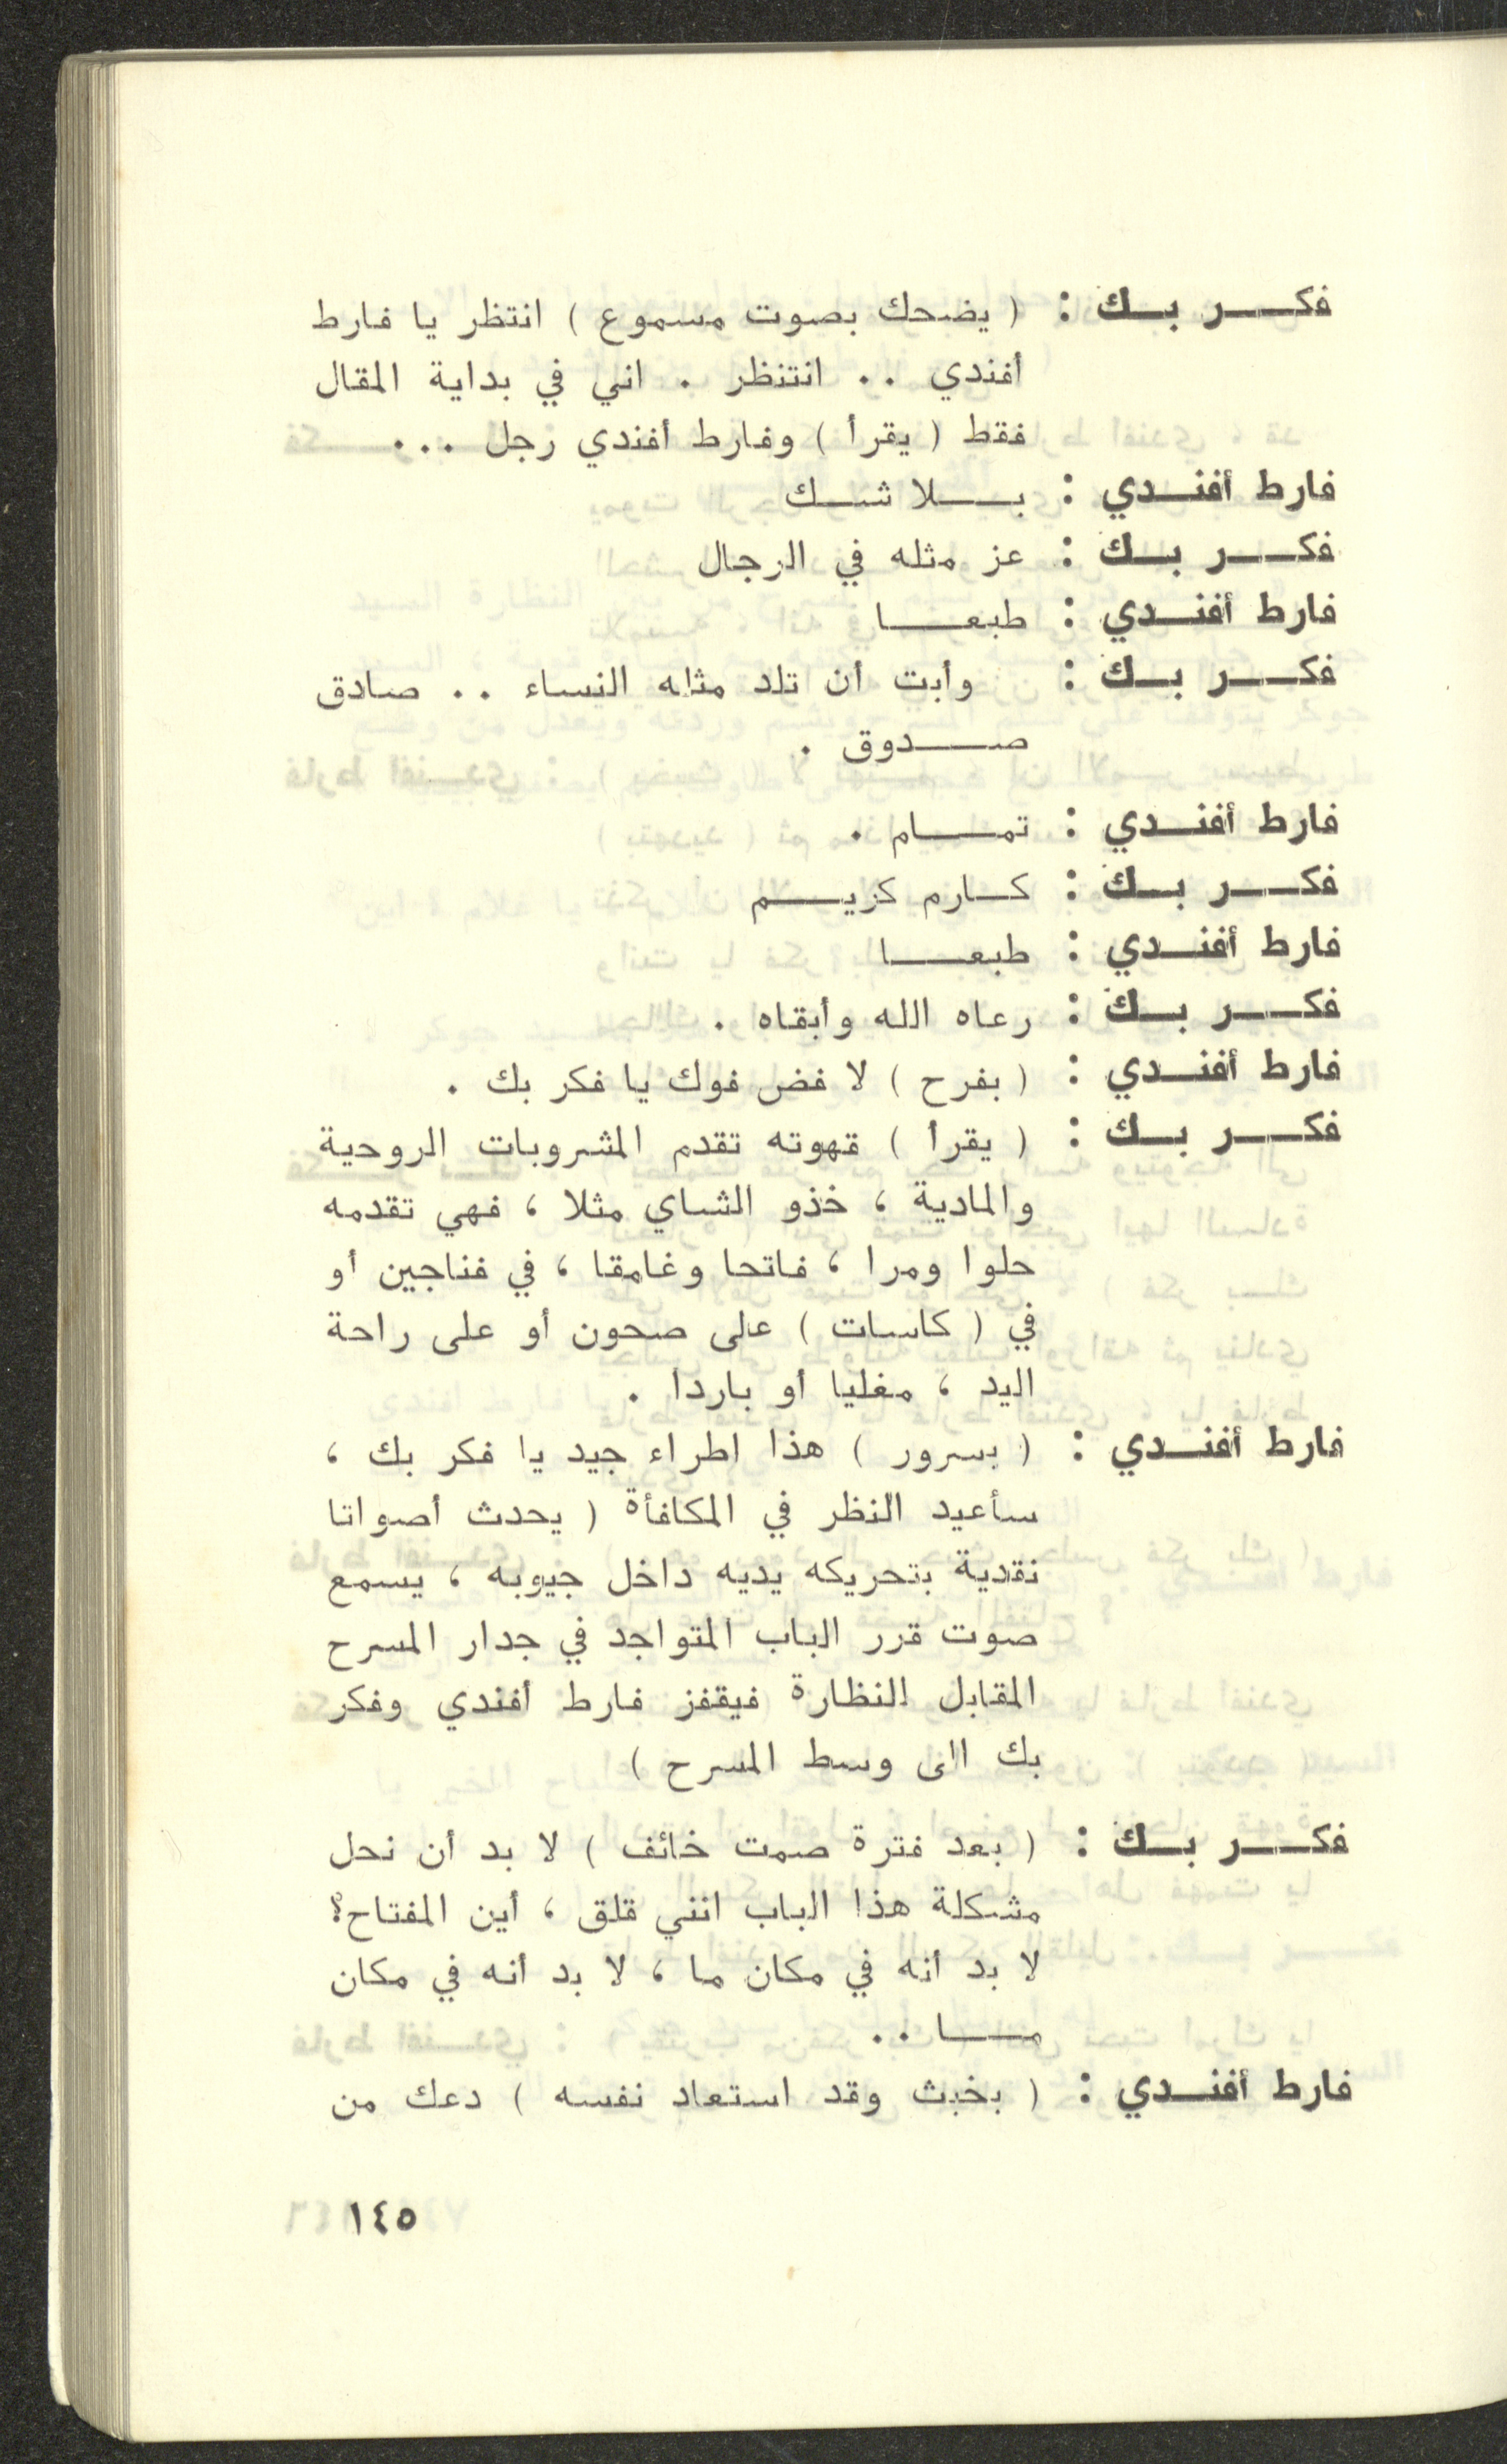 فكر بك : ( يضحك بصوت مسموع ) انتظر يا فارط
أفندي .. انتنظر . اني في بداية المقال
فقط ( يقرأ ) وفارط أفندي رجل ...
فارط أفندي : بلا شك
فكر بك : عز مثله في الرجال
فارط أفندي : طبعا
فكر بك : وأبت أن تلد مثله النساء .. صادق
صدوق .
فارط أفندي : تمام .
فكر بك : كارم كريم
فارط أفندي : طبعا
فكر بك : رعاه الله وأبقاه .
فارط أفندي : ( بفرح ) لا فض فوك يا فكر بك .
فكر بك : ( يقرأ ) قهوته تقدم المشروبات الروحية
والمادية ، خذو الشاي مثلا ، فهي تقدمه
حلوا ومرا ، فاتحا وغامقا ، في فناجين أو
في ( كاسات ) على صحون أو على راحة
اليد ، مغليا أو باردا .
فارط أفندي : ( بسرور ) هذا اطراء جيد يا فكر بك ،
سأعيد النظر في المكافأة ( يحدث أصواتا
نقدية بتحريكه يديه داخل جيوبه ، يسمع
صوت قرر الباب المتواجد في جدار المسرح
المقابل النظارة فيقفز فارط أفندي وفكر
بك الى وسط المسرح )
فكر بك : ( بعد فترة صمت خائف ) لا بد أن نحل
مشكلة هذا الباب انني قلق ، أين المفتاح؟
لا بد أنه في مكان ما ، لا بد أنه في مكان
ما ..
فارط أفندي : ( بخبث وقد استعاد نفسه ) دعك من
١٤٥